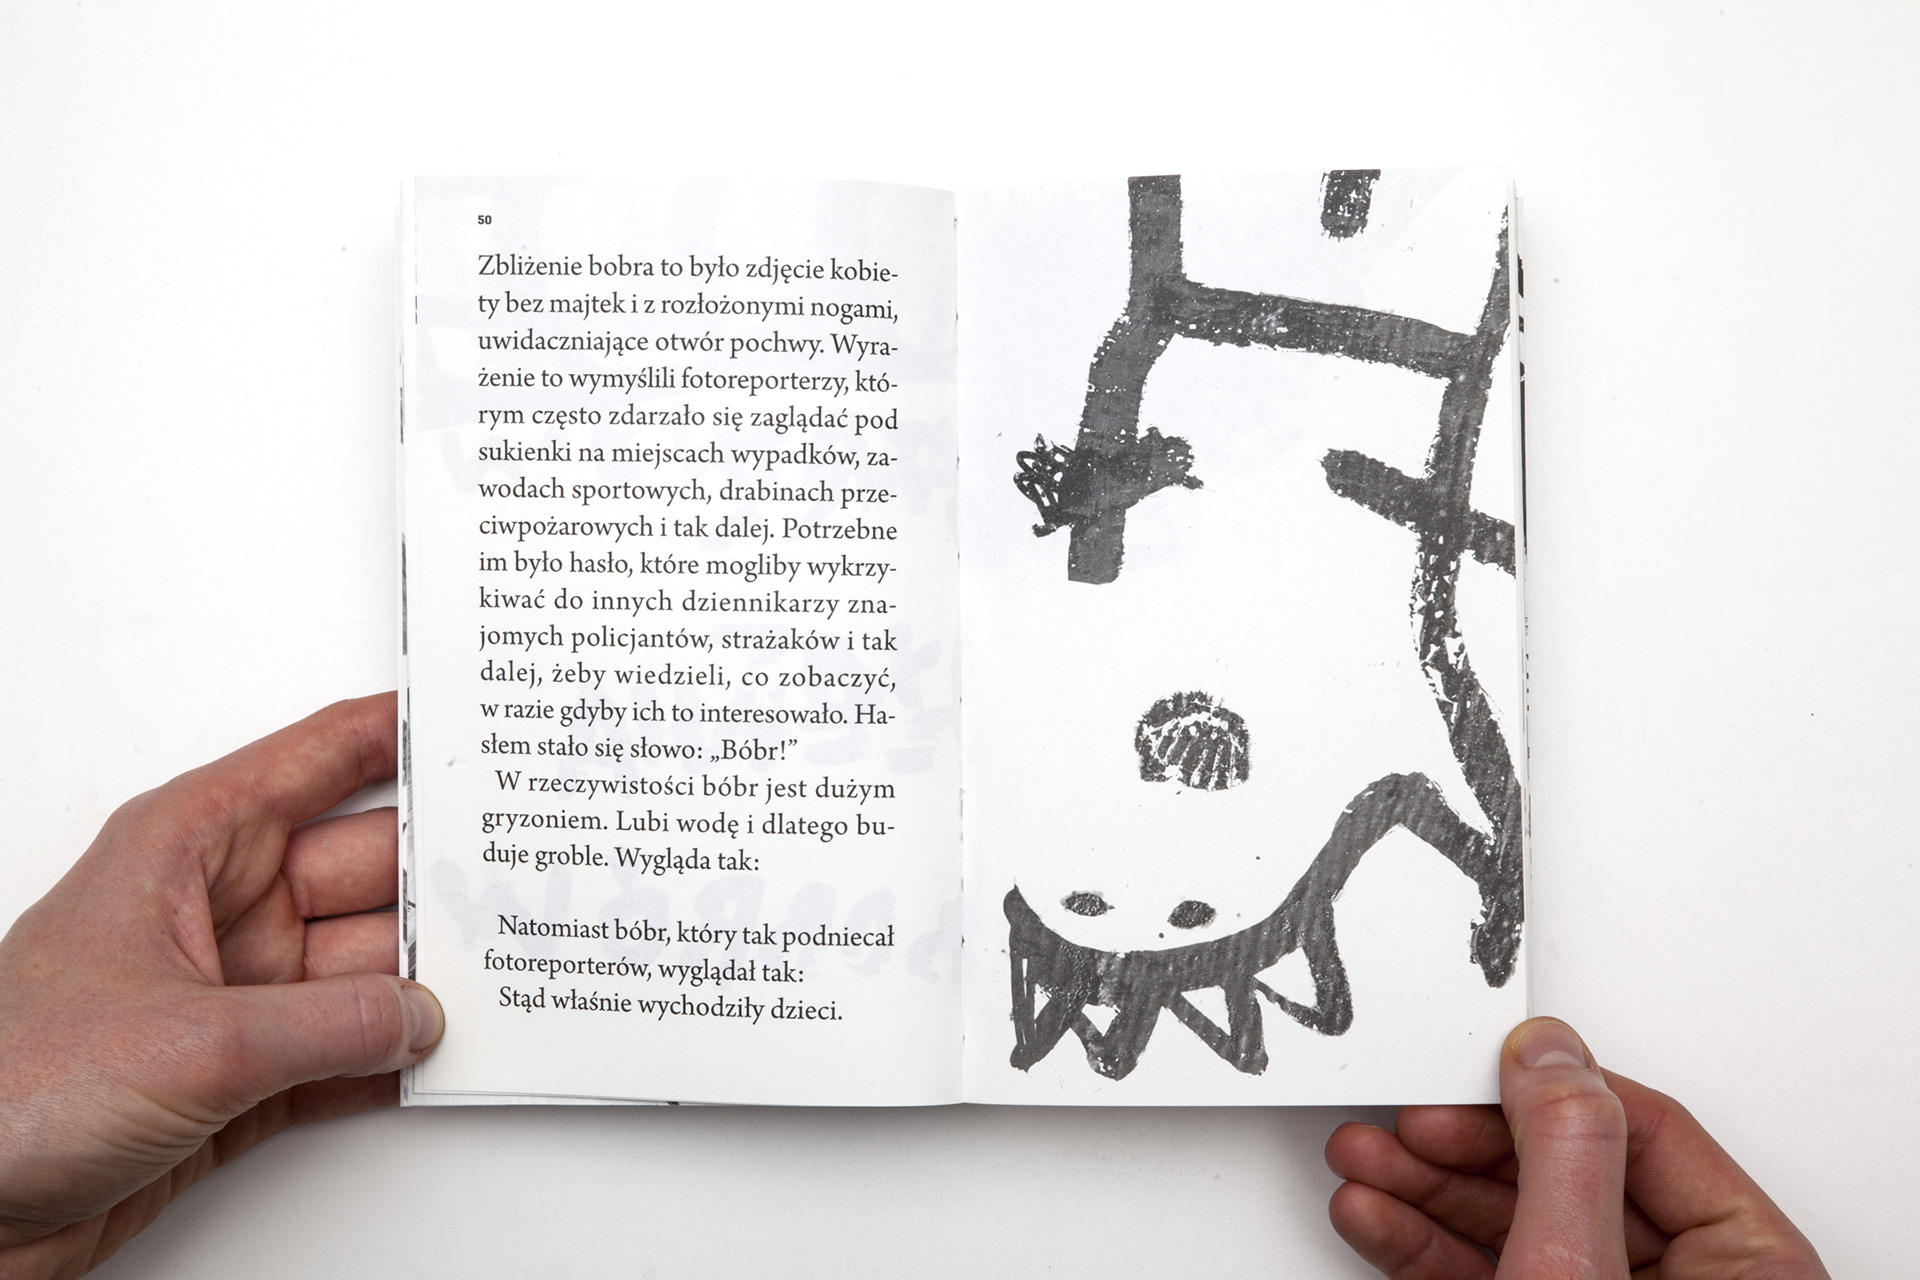 50
Zbliżenie bobra to było zdjęcie kobie-
ty bez majtek i z rozłożonymi nogami,
uwidaczniające otwór pochwy. Wyra-
żenie to wymyślili fotoreporterzy, któ-
rym często zdarzało się zaglądać pod
sukienki na miejscach wypadków, za-
wodach sportowych, drabinach prze-
ciwpożarowych i tak dalej. Potrzebne
im było hasło, które mogliby wykrzy-
kiwać do innych dziennikarzy zna-
jomych policjantów, strażaków i tak
dalej, żeby wiedzieli, co zobaczyć,
w razie gdyby ich to interesowało. Ha-
słem stało się słowo: „Bóbr!”
W rzeczywistości bóbr jest dużym
gryzoniem. Lubi wodę i dlatego bu-
duje groble. Wygląda tak:
Natomiast bóbr, który tak podniecał
fotoreporterów, wyglądał tak:
Stąd właśnie wychodziły dzieci.